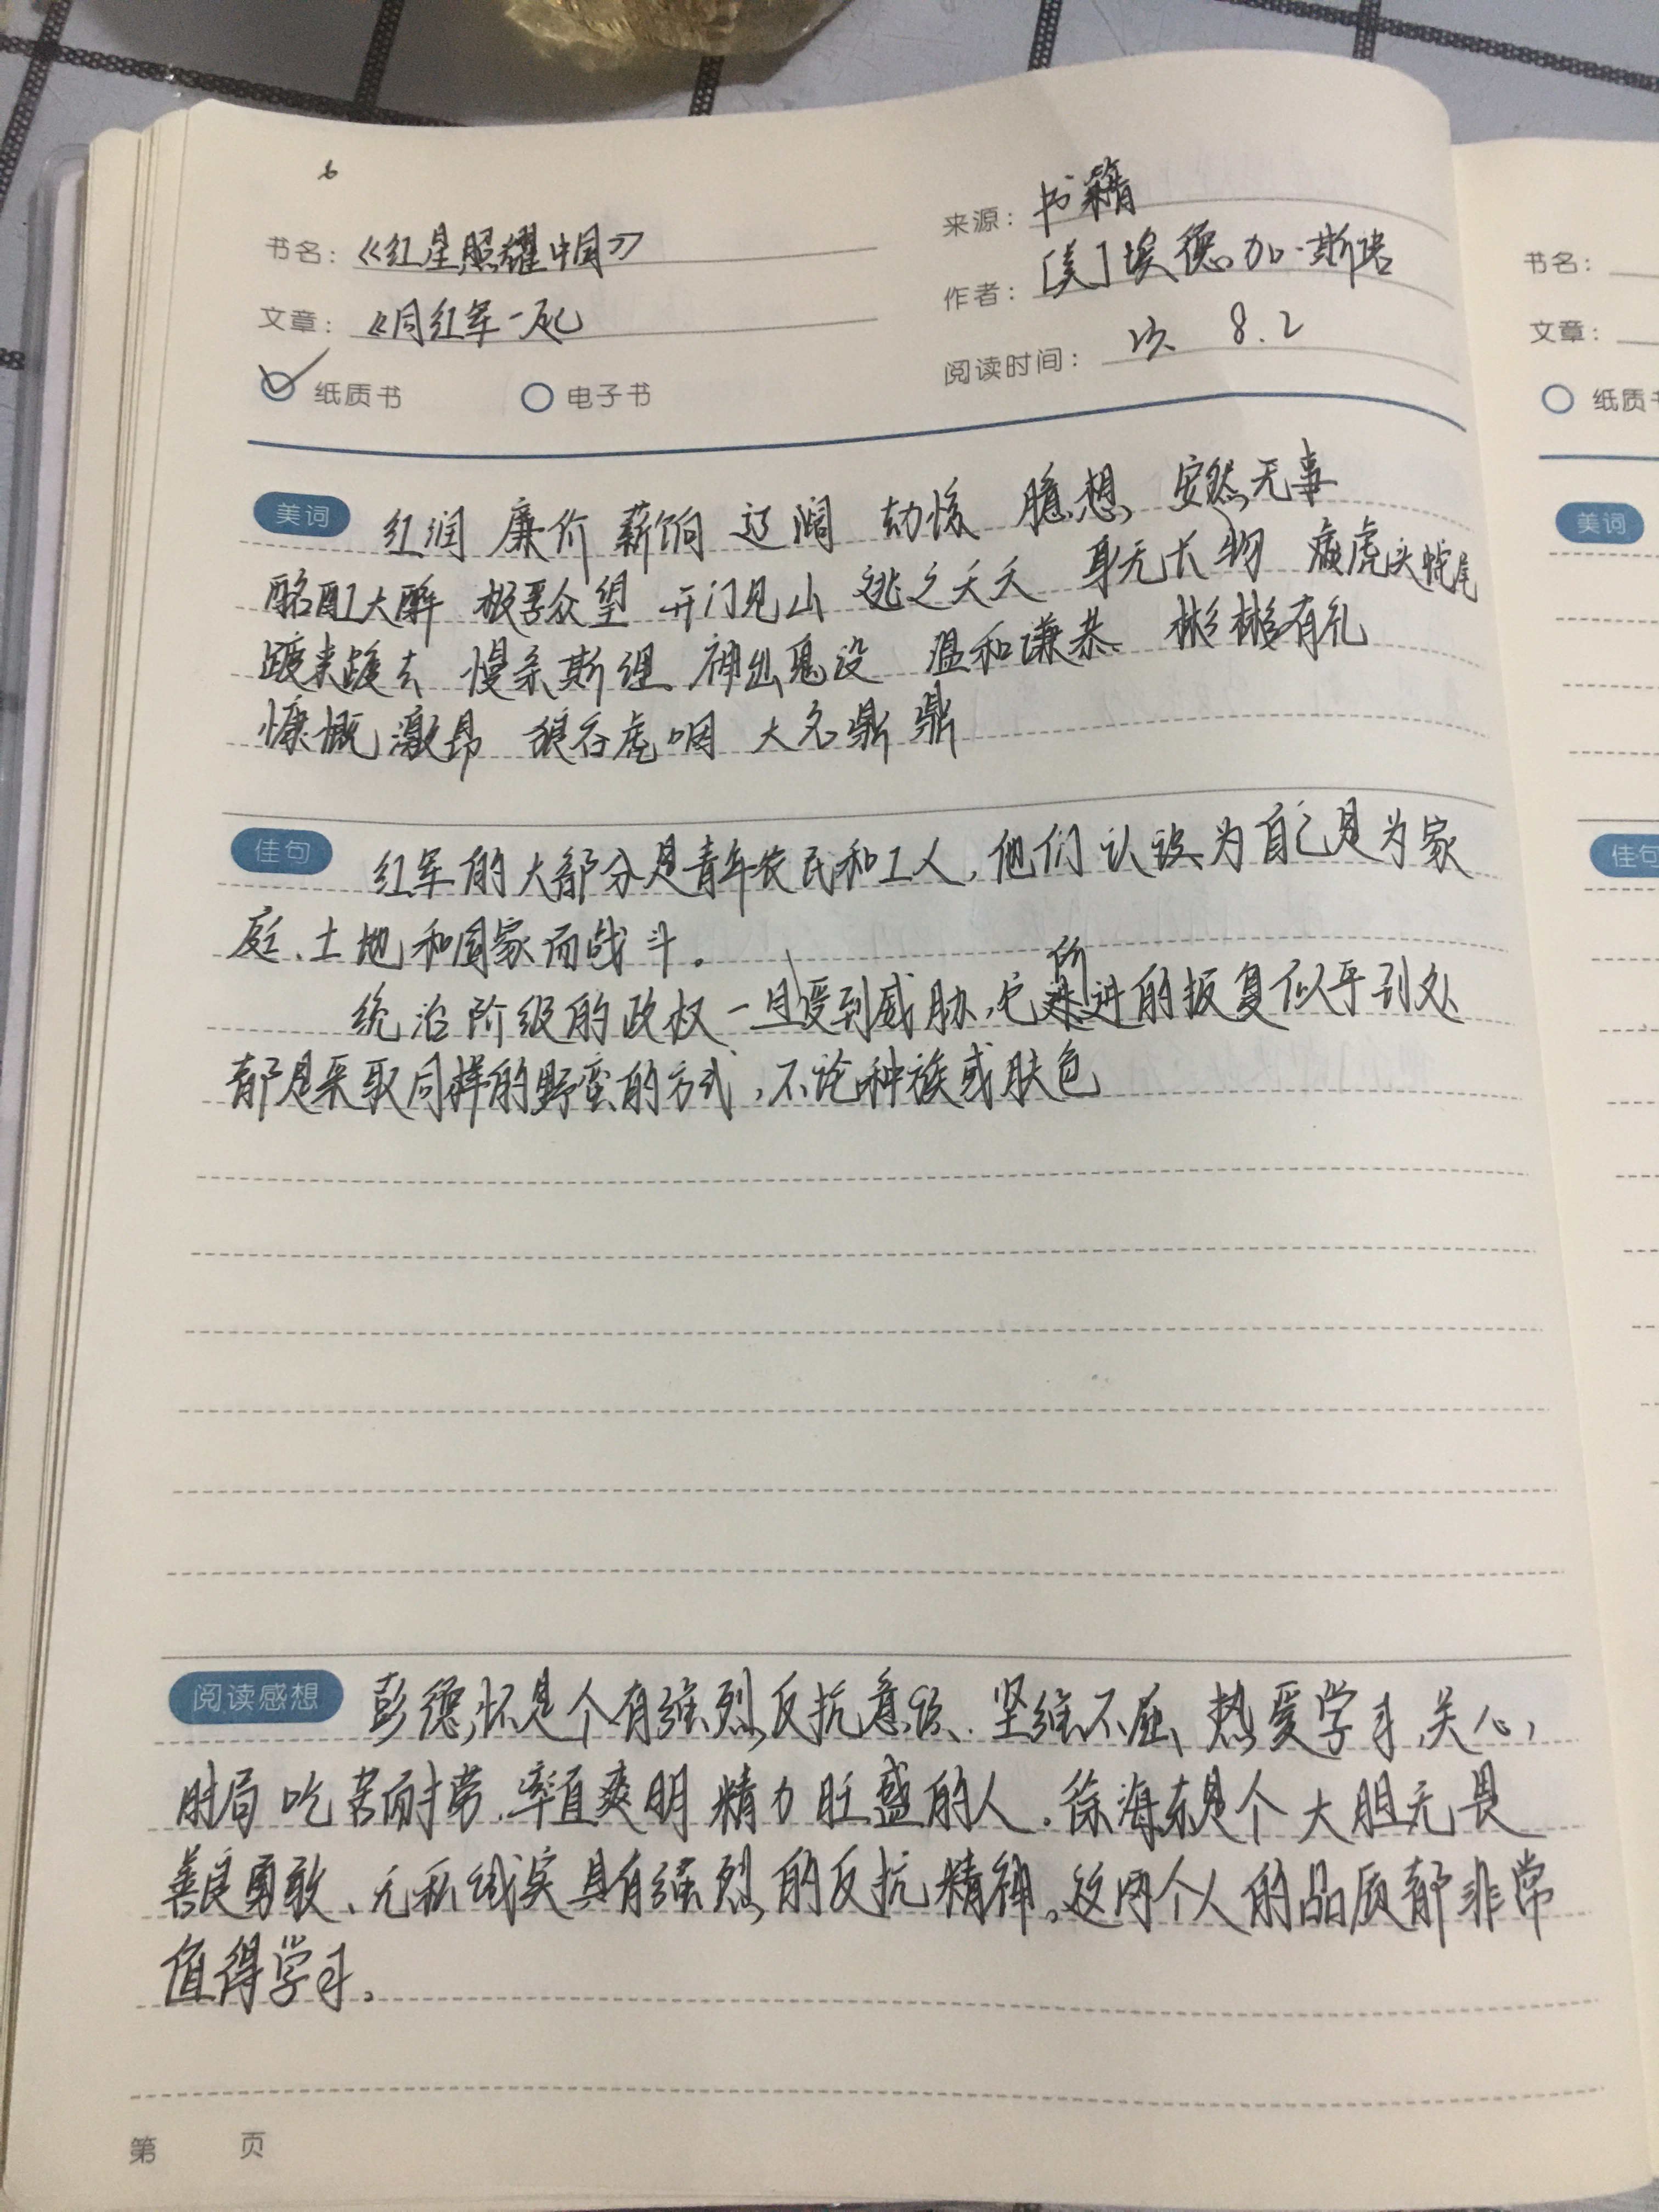 6
书名：《红星照耀中国》
来源：书籍
文章：《同红军一起
作者：[美]埃德加·斯诺
纸质书 电子书
阅读时间： 8.2
美词 红润 廉价 薪饷 辽阔 劫后 臆想 安然无事
酩酊大醉 极孚众望 开门见山 逃之夭夭 身无长物 虎头蛇尾
踱来踱去 慢条斯理 神出鬼没 温和谦恭 彬彬有礼
慷慨激昂 狼吞虎咽 大名鼎鼎
佳句 红军的大部分是青年农民和工人，他们认为自己是为家
庭、土地和国家而战斗。
统治阶级的政权一旦受到威胁，它所进的报复似乎到处
都是采取同样的野蛮的方式，不论种族或肤色
阅读感想 彭德怀是个有强烈反抗意识、坚强不屈、热爱学习、关心
时局 吃苦耐劳、率直爽朗 精力旺盛的人。徐海东是个大胆无畏
善良勇敢、无私诚实具有强烈的反抗精神。这两个人的品质都非常
值得学习。
第 页
书名：
文章：
纸质书
美词
佳句